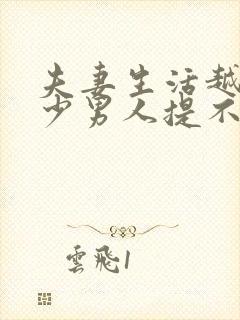 夫妻生活越
少男人提不
雲飛1